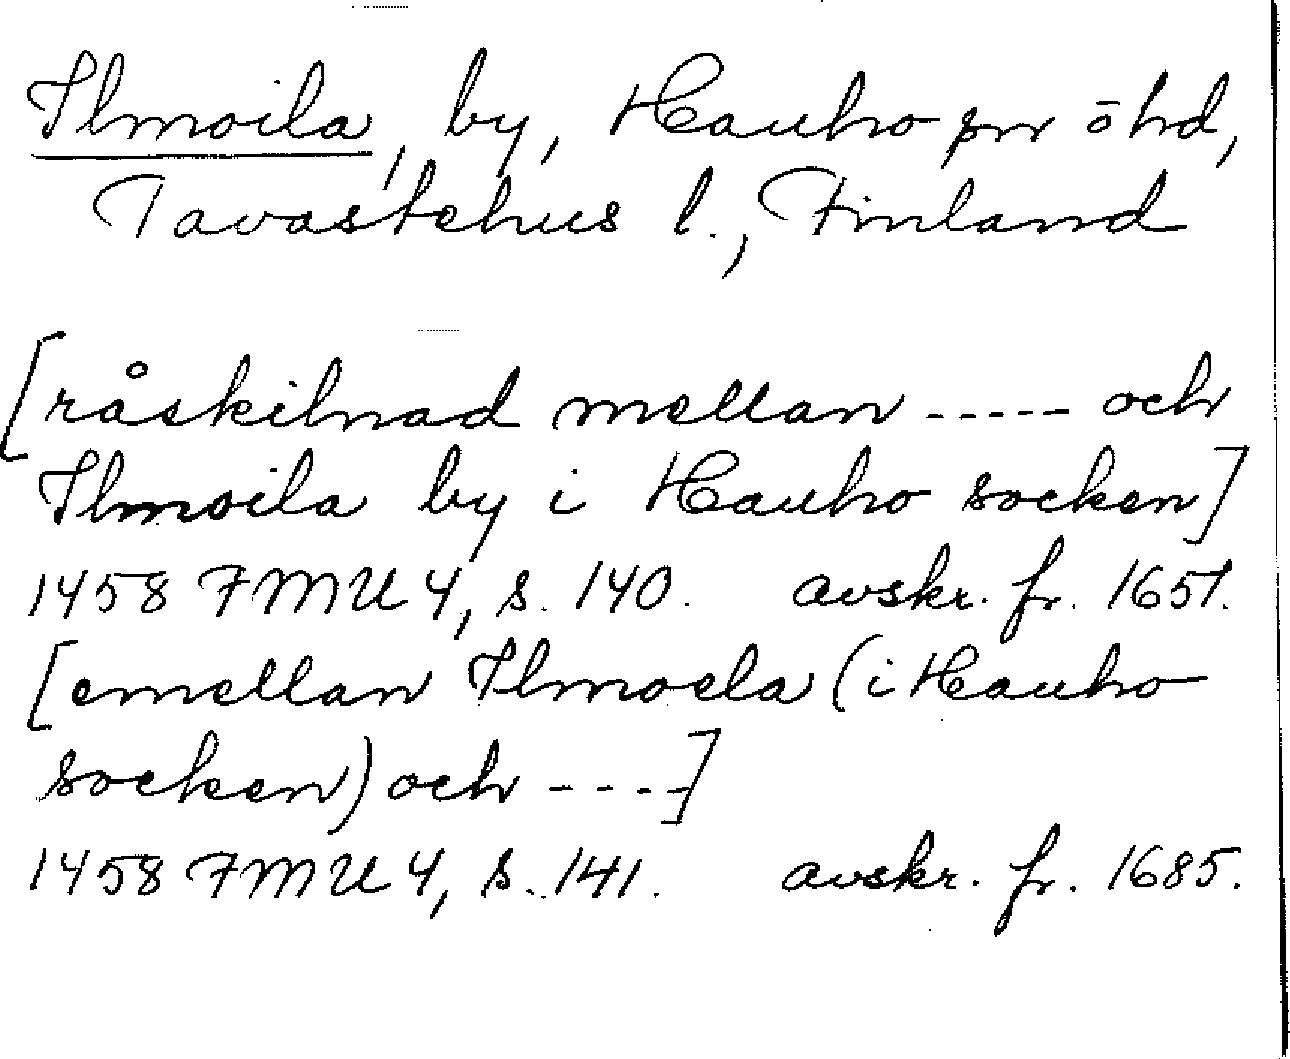 Ilmoila, by, Hauho sn o hd,
Tavastehus l., Finland
[råskilnad mellan ----- och
Ilmoila by i Hauho socken]
1458 FMU 4, s. 140. avskr. fr. 1651.
[emellan Ilmoela (i Hauho
socken) och ----]
1458 FMU 4, s. 141. avskr. fr. 1685.